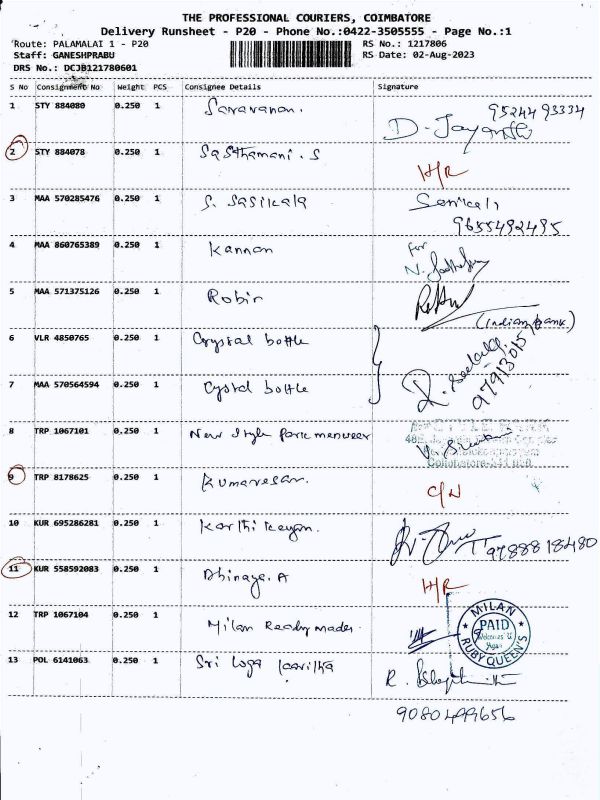 THE PROFESSIONAL COURIERS, COIMBATORE
Delivery Runsheet - P20 - Phone No.:0422-3505555 - Page No.:1
Route: PALAMALAI 1 - P20
RS No.: 1217806
Staff: GANESHPRABU
RS Date: 02-Aug-2023
DRS No.: DCJB121780601
S No Consignment No Weight PCS Consignee Details Signature
1 STY 884080 0.250 1 Saravanan. 95244 93334
D. Jayanthi
2 STY 884078 0.250 1 Sasthamani. S H/R
3 MAA 570285476 0.250 1 S. Sasikala
9655492495
4 MAA 860765389 0.250 1 Kannan For
N.
5 MAA 571375126 0.250 1 Robin
(Indian Bank)
6 VLR 4850765 0.250 1 Crystal bottle
7 MAA 570564594 0.250 1 Cystal bottle
8 TRP 1067101 0.250 1 New Style Park menwear
9 TRP 8178625 0.250 1 Kumaresan. C/N
10 KUR 695286281 0.250 1 Karthikeyan. 9788818480
11 KUR 558592083 0.250 1 Abinaya. A H/R
12 TRP 1067104 0.250 1 Milan Readymades
MILAN
PAID
Welcomes U
Again
RUBY QUEEN'S
13 POL 6141063 0.250 1 Sri Loga R.
9080499656